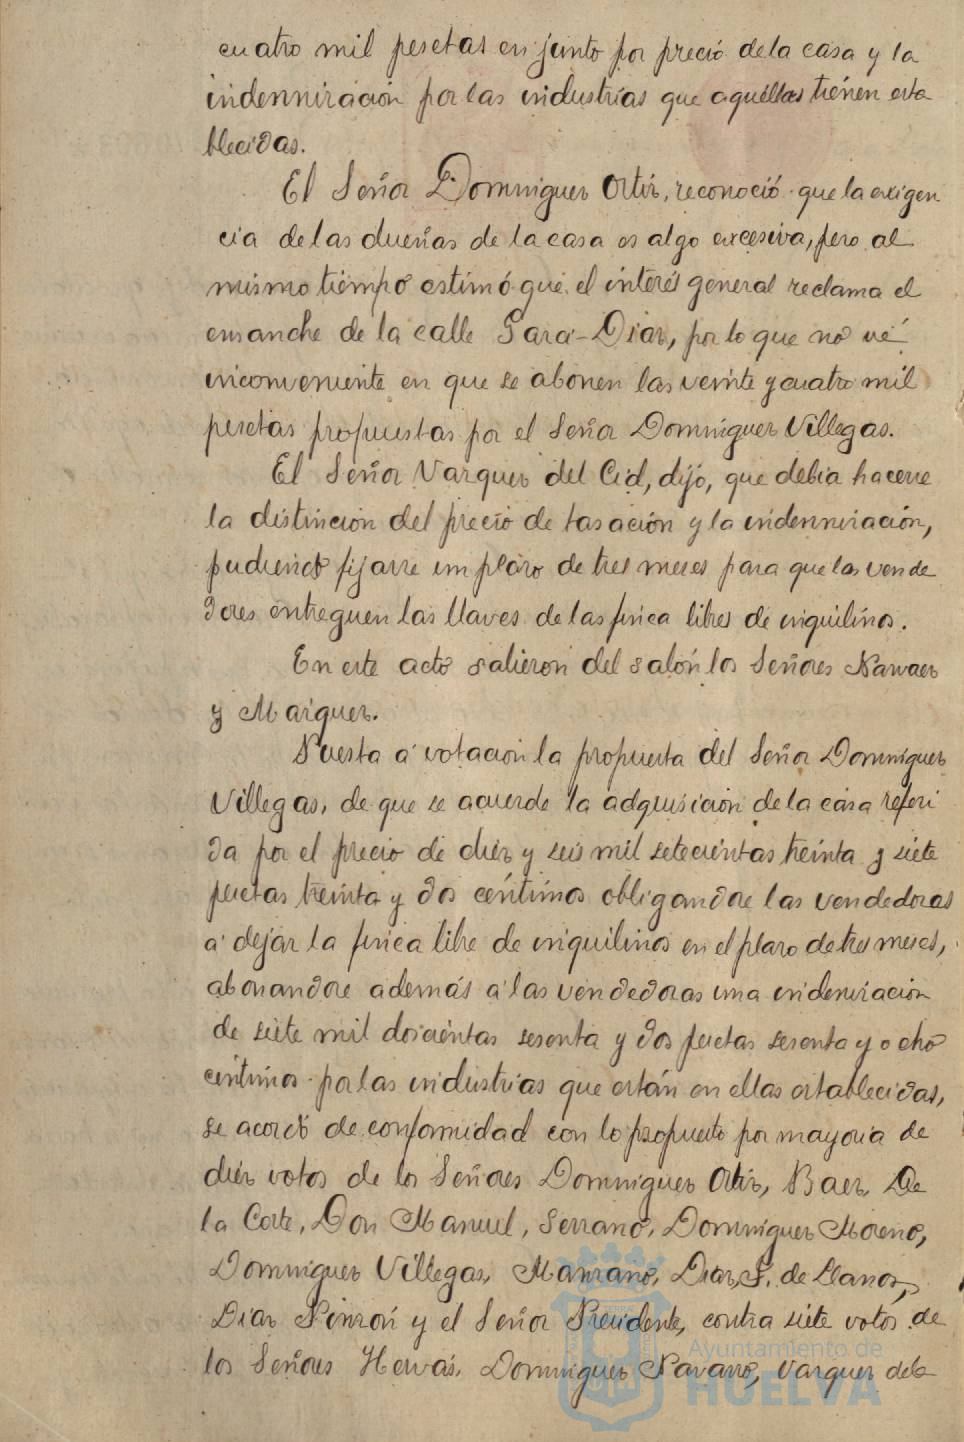 cuatro mil pesetas en junto por precio de la casa y la
indennización por las industrias que aquéllas tienen esta
blecidas.
El Señor Dominguez Ortiz, reconoció que la exigen
cia de las dueñas de la casa es algo excesiva, pero al
mismo tiempo estimó que el interés general reclama el
ensanche de la calle Garci-Diaz, por lo que no vé
inconveniente en que se abonen las veinte y cuatro mil
pesetas propuestas por el Señor Dominguez Villegas.
El Señor Vazquez del Cid, dijo, que debia hacerse
la distincion del precio de tasación y la indennización,
pudiendo fijarse un plazo de tres meses para que las vende
dores entreguen las llaves de las finca libres de inquilinos.
En este acto salieron del salón los Señores Narvaez
y Maiquez.
Puesta á votacion la propuesta del Señor Dominguez
Villegas, de que se acuerde la adquisición de la casa referi
da por el precio de diez y seis mil setecientas treinta y siete
pesetas treinta y dos centimos obligandose las vendedoras
á dejar la finca libre de inquilinos en el plazo de tres meses,
abonandose además á las vendedoras una indenización
de siete mil doscientas sesenta y dos pesetas sesenta y ocho
centimos por las industrias que están en ellas establecidas,
se acordó de conformidad con lo propuesto por mayoria de
diez votos de los Señores Dominguez Ortiz, Baez, De
la Corte, Don Manuel, Serrano, Dominguez Moreno,
Dominguez Villegas, Manzano, Diaz, S. de Llanos,
Diaz Pinzón y el Señor Presidente, contra siete votos de
los Señores Hervás, Dominguez Navarro, Vazquez del
Ayuntamiento de
HUELVA